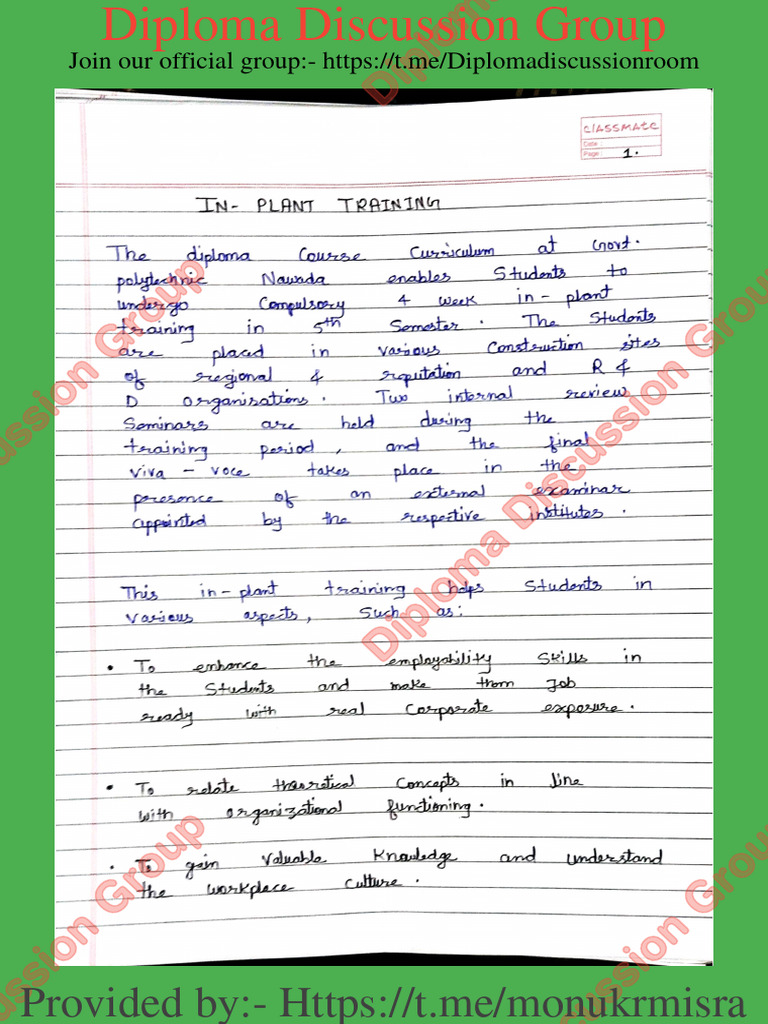 Diploma Discussion Group
Join our official group:- https://t.me/Diplomadiscussionroom
CLASSMATE
Date :
Page : 1.
IN- PLANT TRAINING
The diploma Course Curriculum at Govt.
polytechnic Nawada enables Students to
undergo Compulsory 4 week in-plant
training in 5th Semester. The Students
are placed in various Construction sites
of regional & reputation and R &
D organisations. Two internal review
Seminars are held during the
training period, and the final
viva - voce takes place in the
presence of an external examinar
appointed by the respective institutes.
This in-plant training helps Students in
various aspects, Such as:
• To enhance the employability Skills in
the Students and make them Job
ready with real Corporate exposure.
• To relate theoretical Concepts in line
with organizational functioning.
• To gain valuable Knowledge and understand
the workplace culture.
Diploma Discussion Group
Provided by:- Https://t.me/monukrmisra